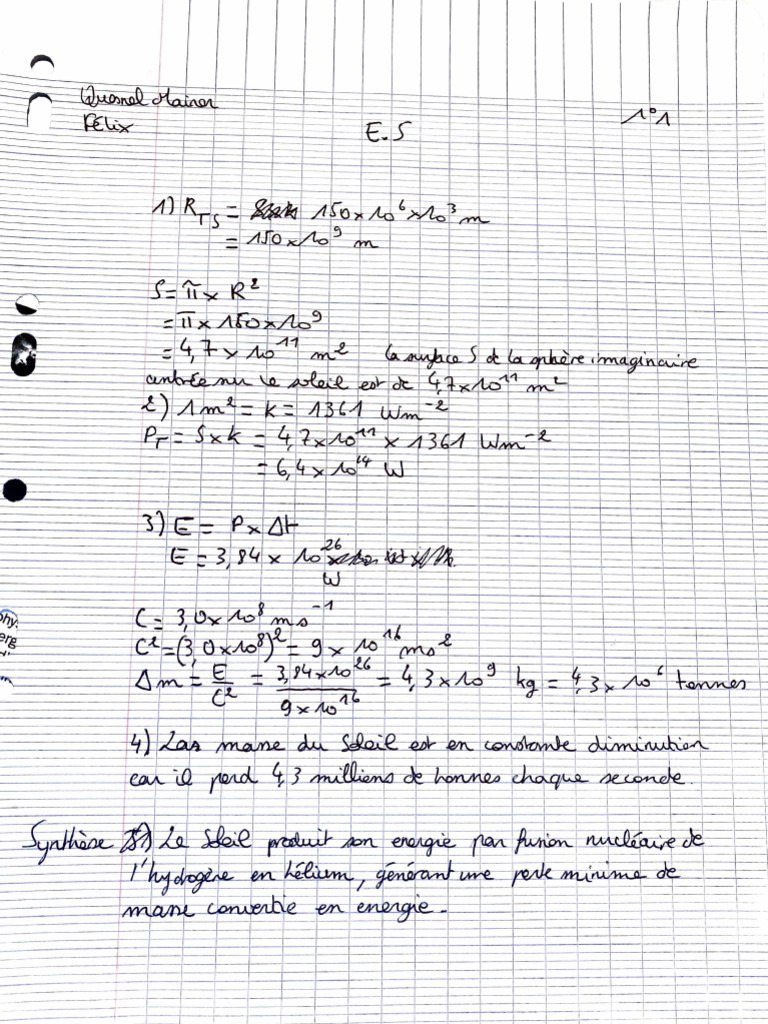 Quesnel Mainer
Félix
E.S
1°1
1) R_TS = 150×10⁶×10³ m
= 150×10⁹ m
S = π × R²
= π × 150×10⁹
= 4,7 × 10¹¹ m² La surface S de la sphère imaginaire
centrée sur le soleil est de 4,7×10¹¹ m²
2) 1 m² = k = 1361 Wm⁻²
P_T = S×k = 4,7×10¹¹ × 1361 Wm⁻²
= 6,4×10¹⁴ W
3) E = P×Δt
E = 3,84 × 10²⁶
W
C = 3,0×10⁸ ms⁻¹
C² = (3,0×10⁸)² = 9×10¹⁶ ms²
Δm = E/C² = 3,84×10²⁶/9×10¹⁶ = 4,3×10⁹ kg = 4,3×10⁶ tonnes
4) Las masse du Soleil est en constante diminution
car il perd 4,3 millions de tonnes chaque seconde.
Synthèse Le Soleil produit son energie par fusion nucléaire de
l'hydrogène en hélium, générant une perte minime de
masse convertie en energie.
phy.
erg